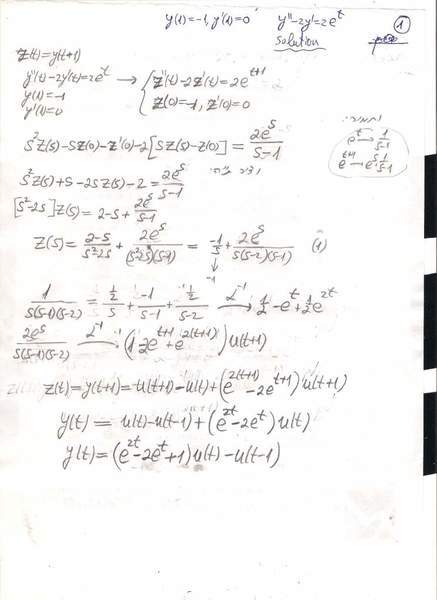 y(1)=-1, y'(1)=0 y''-2y'=2e^t 1
solution
z(t)=y(t+1)
y''(t)-2y'(t)=2e^t → { z''(t)-2z'(t)=2e^{t+1}
y(1)=-1 z(0)=-1, z'(0)=0
y'(1)=0
s^2 Z(s)-sz(0)-z'(0)-2[sZ(s)-z(0)] = 2e^s/(s-1)
e^t → 1/(s-1)
e^{t+1} → e^s 1/(s-1)
s^2 Z(s)+s-2sZ(s)-2=2e^s/(s-1)
[s^2-2s]Z(s)=2-s+2e^s/(s-1)
Z(s)=(2-s)/(s^2-2s)+2e^s/((s^2-2s)(s-1)) = -1/s+2e^s/(s(s-2)(s-1)) (1)
-1
1/(s(s-1)(s-2)) = (1/2)/s+(-1)/(s-1)+(1/2)/(s-2) L^{-1}→ 1/2-e^t+1/2e^{2t}
2e^s/(s(s-1)(s-2)) L^{-1}→ (1-2e^{t+1}+e^{2(t+1)})u(t+1)
z(t)=y(t+1)=u(t+1)-u(t)+(e^{2(t+1)}-2e^{t+1})u(t+1)
y(t)=u(t)-u(t-1)+(e^{2t}-2e^t)u(t)
y(t)=(e^{2t}-2e^t+1)u(t)-u(t-1)